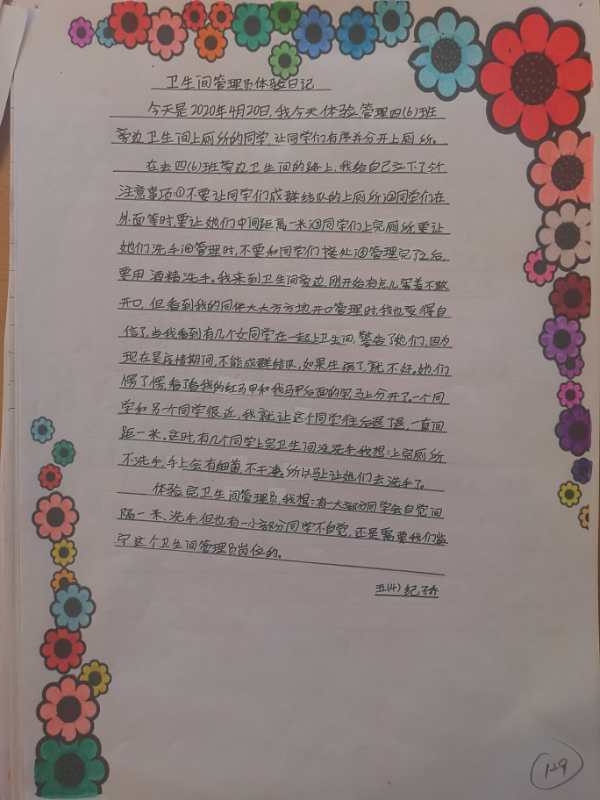 卫生间管理员体验日记
今天是2020年4月20日,我今天体验管理四(6)班
旁边卫生间上厕所的同学,让同学们有序并分开上厕所。
在去四(6)班旁边卫生间的路上,我给自己定下了3个
注意事项①不要让同学们成群结队的上厕所②同学们在
外面等时,要让她们中间距离一米③同学们上完厕所要让
她们洗手④管理时,不要和同学们接处⑤管理完了之后,
要用酒精洗手。我来到卫生间旁边,刚开始有点儿害羞不敢
开口,但看到我的同伴大大方方地开口管理时,我也变得自
信了,当我看到有几个女同学在一起上卫生间,警告了她们,因为
现在是疫情期间,不能成群结队,如果生病了就不好。她们
愣了愣,看了看我的红马甲和我马甲后面的字,马上分开了。一个同
学和另一个同学很近,我就让这个同学往后退退,一直间
距一米。这时,有几个同学上完卫生间没洗手,我想:上完厕所
不洗手,手上会有细菌,不干净,所以马上让她们去洗手了。
体验完卫生间管理员,我想:有一大部分同学会自觉间
隔一米、洗手,但也有一小部分同学不自觉,还是需要我们坚
守这个卫生间管理员岗位的。
五(4) 纪
129